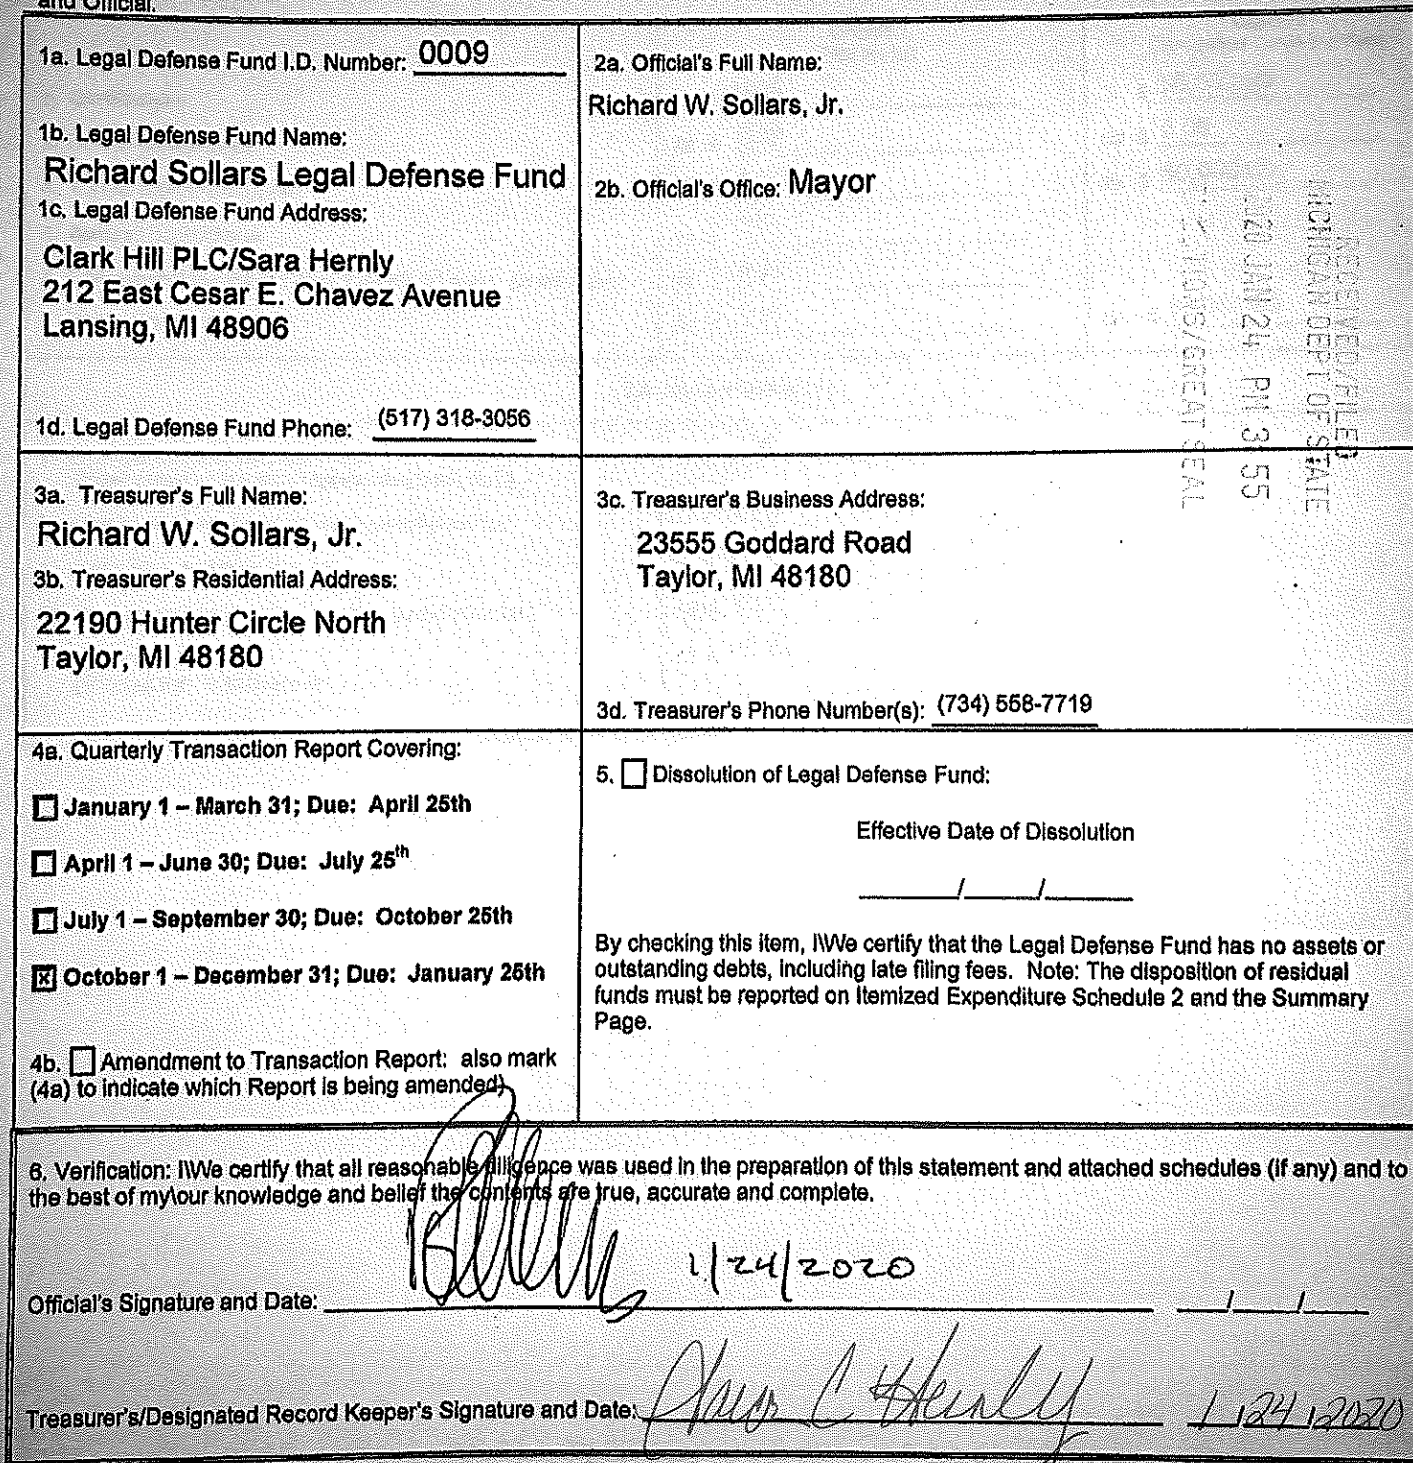 and Official.
1a. Legal Defense Fund I.D. Number: 0009
1b. Legal Defense Fund Name:
Richard Sollars Legal Defense Fund
1c. Legal Defense Fund Address:
Clark Hill PLC/Sara Hernly
212 East Cesar E. Chavez Avenue
Lansing, MI 48906
1d. Legal Defense Fund Phone: (517) 318-3056
2a. Official's Full Name:
Richard W. Sollars, Jr.
2b. Official's Office: Mayor
RECEIVED/FILED
MICHIGAN DEPT OF STATE
20 JAN 24 PM 3:55
ELECTIONS/GREAT SEAL
3a. Treasurer's Full Name:
Richard W. Sollars, Jr.
3b. Treasurer's Residential Address:
22190 Hunter Circle North
Taylor, MI 48180
3c. Treasurer's Business Address:
23555 Goddard Road
Taylor, MI 48180
3d. Treasurer's Phone Number(s): (734) 558-7719
4a. Quarterly Transaction Report Covering:
January 1 – March 31; Due: April 25th
April 1 – June 30; Due: July 25th
July 1 – September 30; Due: October 25th
☒ October 1 – December 31; Due: January 25th
4b. ☐ Amendment to Transaction Report: also mark
(4a) to indicate which Report is being amended)
5. ☐ Dissolution of Legal Defense Fund:
Effective Date of Dissolution
____/____/____
By checking this item, I\We certify that the Legal Defense Fund has no assets or
outstanding debts, including late filing fees. Note: The disposition of residual
funds must be reported on Itemized Expenditure Schedule 2 and the Summary
Page.
6. Verification: I\We certify that all reasonable diligence was used in the preparation of this statement and attached schedules (if any) and to
the best of my\our knowledge and belief the contents are true, accurate and complete.
1/24/2020
Official's Signature and Date: ____/____/____
Treasurer's/Designated Record Keeper's Signature and Date: 1/24/2020